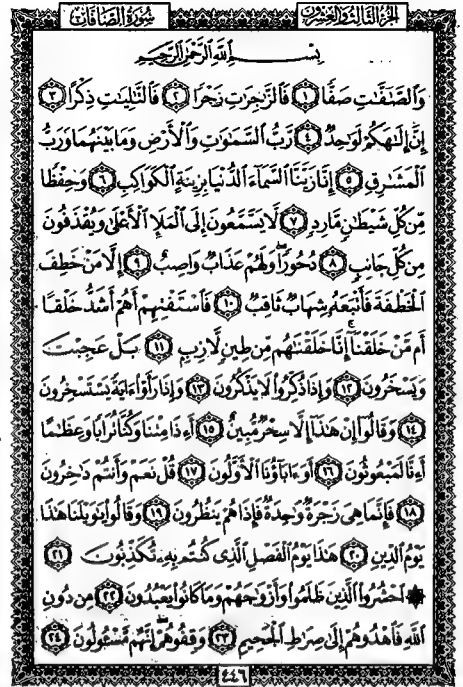 الجزء الثالث والعشرون سورة الصافات
بسم الله الرحمن الرحيم
وَالصَّٰٓفَّٰتِ صَفًّا ١ فَالزَّٰجِرَٰتِ زَجْرًا ٢ فَالتَّٰلِيَٰتِ ذِكْرًا ٣
إِنَّ إِلَٰهَكُمْ لَوَٰحِدٌ ٤ رَّبُّ السَّمَٰوَٰتِ وَالْأَرْضِ وَمَا بَيْنَهُمَا وَرَبُّ
الْمَشَٰرِقِ ٥ إِنَّا زَيَّنَّا السَّمَآءَ الدُّنْيَا بِزِينَةٍ الْكَوَاكِبِ ٦ وَحِفْظًا
مِّن كُلِّ شَيْطَٰنٍ مَّارِدٍ ٧ لَّا يَسَّمَّعُونَ إِلَى الْمَلَإِ الْأَعْلَىٰ وَيُقْذَفُونَ
مِن كُلِّ جَانِبٍ ٨ دُحُورًا وَلَهُمْ عَذَابٌ وَاصِبٌ ٩ إِلَّا مَنْ خَطِفَ
الْخَطْفَةَ فَأَتْبَعَهُ شِهَابٌ ثَاقِبٌ ١٠ فَاسْتَفْتِهِمْ أَهُمْ أَشَدُّ خَلْقًا
أَم مَّنْ خَلَقْنَآ إِنَّا خَلَقْنَٰهُم مِّن طِينٍ لَّازِبٍ ١١ بَلْ عَجِبْتَ
وَيَسْخَرُونَ ١٢ وَإِذَا ذُكِّرُوا لَا يَذْكُرُونَ ١٣ وَإِذَا رَأَوْا ءَايَةً يَسْتَسْخِرُونَ
١٤ وَقَالُوٓا إِنْ هَٰذَآ إِلَّا سِحْرٌ مُّبِينٌ ١٥ أَءِذَا مِتْنَا وَكُنَّا تُرَابًا وَعِظَٰمًا
أَءِنَّا لَمَبْعُوثُونَ ١٦ أَوَءَابَآؤُنَا الْأَوَّلُونَ ١٧ قُلْ نَعَمْ وَأَنتُمْ دَٰخِرُونَ
١٨ فَإِنَّمَا هِيَ زَجْرَةٌ وَٰحِدَةٌ فَإِذَا هُمْ يَنظُرُونَ ١٩ وَقَالُوا يَٰوَيْلَنَا هَٰذَا
يَوْمُ الدِّينِ ٢٠ هَٰذَا يَوْمُ الْفَصْلِ الَّذِي كُنتُم بِهِ تُكَذِّبُونَ ٢١
۞ احْشُرُوا الَّذِينَ ظَلَمُوا وَأَزْوَٰجَهُمْ وَمَا كَانُوا يَعْبُدُونَ ٢٢ مِن دُونِ
اللَّهِ فَاهْدُوهُمْ إِلَىٰ صِرَٰطِ الْجَحِيمِ ٢٣ وَقِفُوهُمْ إِنَّهُم مَّسْـُٔولُونَ ٢٤
٤٤٦